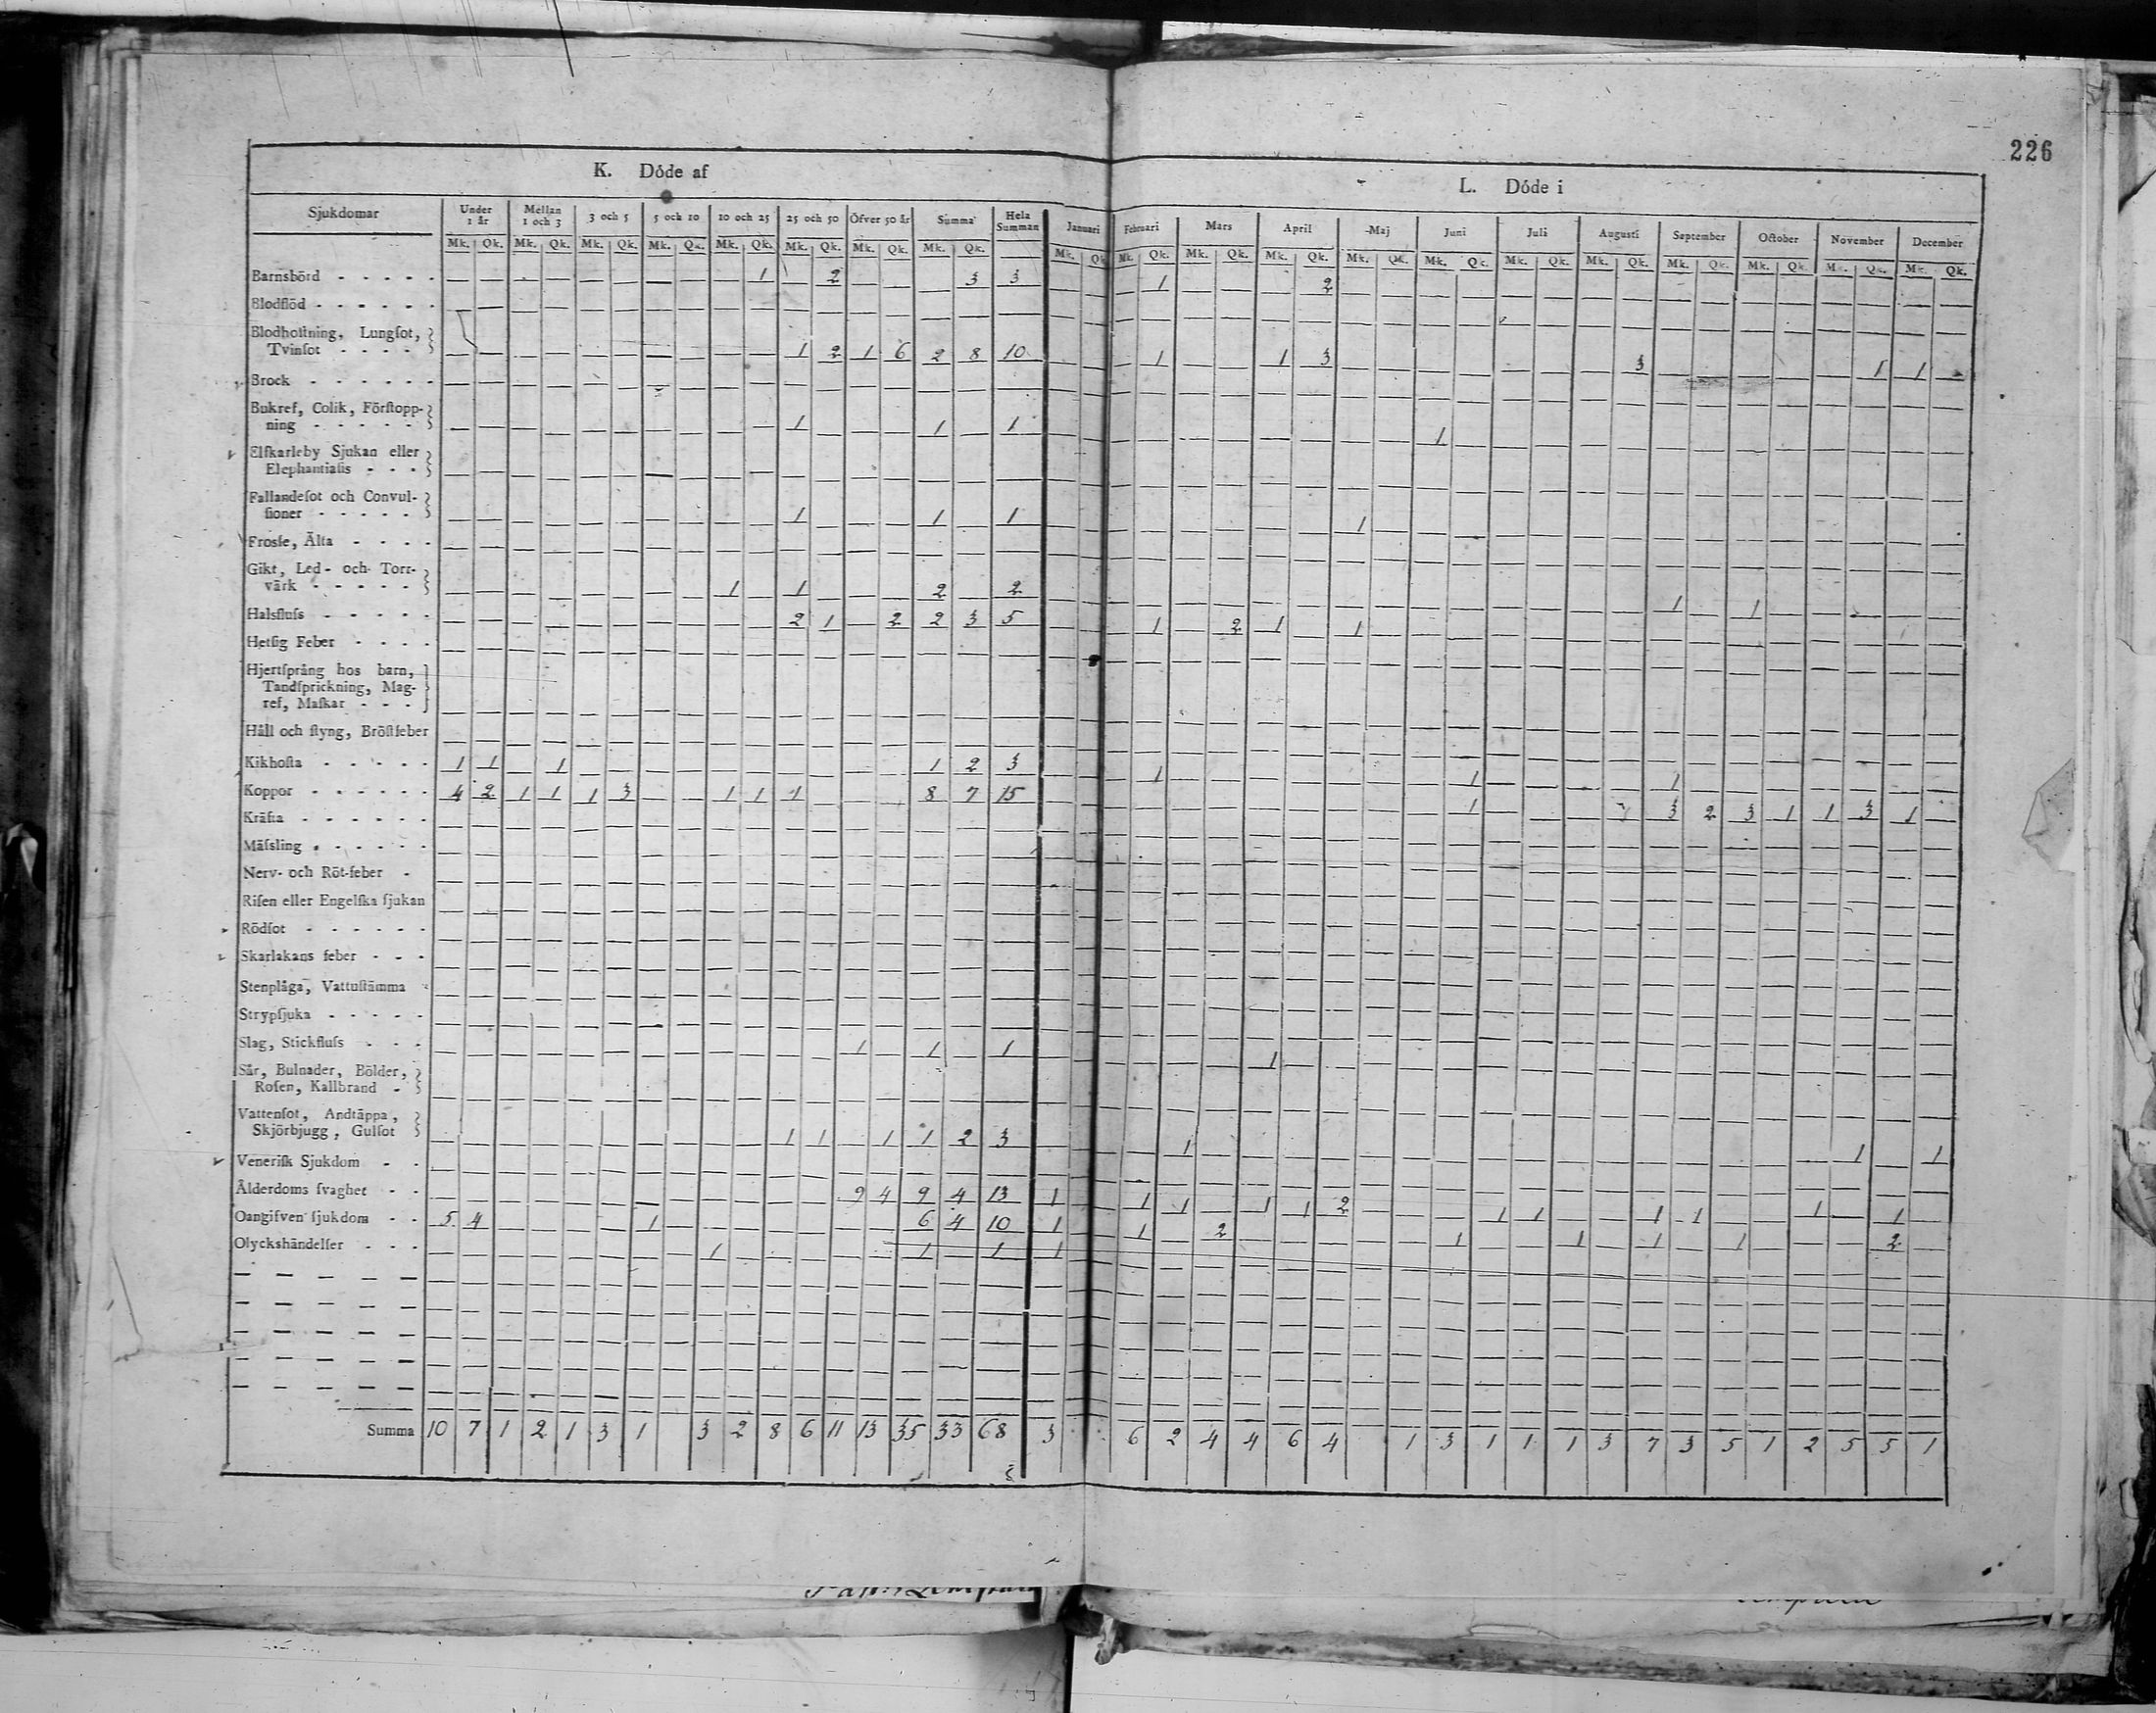 226
K. Döde af
L. Döde i
Sjukdomar Under 1 år Mellan 1 och 3 3 och 5 5 och 10 10 och 25 25 och 50 Öfver 50 år Summa Hela Summan Januari Februari Mars April Maj Juni Juli Augusti September October November December
Mk. Qk. Mk. Qk. Mk. Qk. Mk. Qk. Mk. Qk. Mk. Qk. Mk. Qk. Mk. Qk. Mk. Qk. Mk. Qk. Mk. Qk. Mk. Qk. Mk. Qk. Mk. Qk. Mk. Qk. Mk. Qk. Mk. Qk. Mk. Qk. Mk. Qk. Mk. Qk.
Barnsbörd - - - - - 1 2 3 3 1 2
Blodflöd - - - - - -
Blodhoſtning, Lungſot,
Tvinſot - - - - 1 2 1 6 2 8 10 1 1 3 3 1 1
Brock - - - - - -
Bukref, Colik, Förſtopp-
ning - - - - - 1 1 1 1
Elfkarleby Sjukan eller
Elephantiaſis - - -
Fallandeſot och Convul-
ſioner - - - - - 1 1 1 1
Froſſe, Älta - - - -
Gikt, Led- och Torr-
värk - - - - - 1 1 2 2 1 1
Halsfluſs - - - - - 2 1 2 2 3 5 1 2 1 1
Hetſig Feber - - - -
Hjertſprång hos barn,
Tandſprickning, Mag-
ref, Maſkar - - -
Håll och ſtyng, Bröſtfeber
Kikhoſta - - - - - 1 1 1 1 2 3 1 1 1
Koppor - - - - - - 4 2 1 1 1 3 1 1 1 8 7 15 1 3 2 3 1 1 3 1
Kräfta - - - - - -
Mäſsling - - - - - -
Nerv- och Röt-feber -
Riſen eller Engelſka ſjukan
Rödſot - - - - - -
Skarlakans feber - - -
Stenplåga, Vattuſtämma
Strypſjuka - - - - -
Slag, Stickfluſs - - - 1 1 1 1
Sår, Bulnader, Bölder,
Roſen, Kallbrand -
Vattenſot, Andtäppa,
Skjörbjugg, Gulſot 1 1 1 1 2 3 1 1 1
Veneriſk Sjukdom - -
Ålderdoms ſvaghet - - 9 4 9 4 13 1 1 1 1 1 2 1 1 1 1 1 1
Oangifven ſjukdom - - 5 4 1 6 4 10 1 1 2 1 1 1 1 2
Olyckshändelſer - - - 1 1 1 1
Summa 10 7 1 2 1 3 1 3 2 8 6 11 13 35 33 68 3 6 2 4 4 6 4 1 3 1 1 1 3 7 3 5 1 2 5 5 1